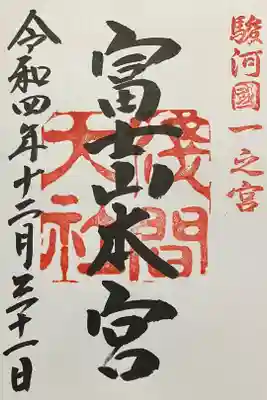 駿河國一之宮
富士山本宮
淺間大社
令和四年十二月三十一日